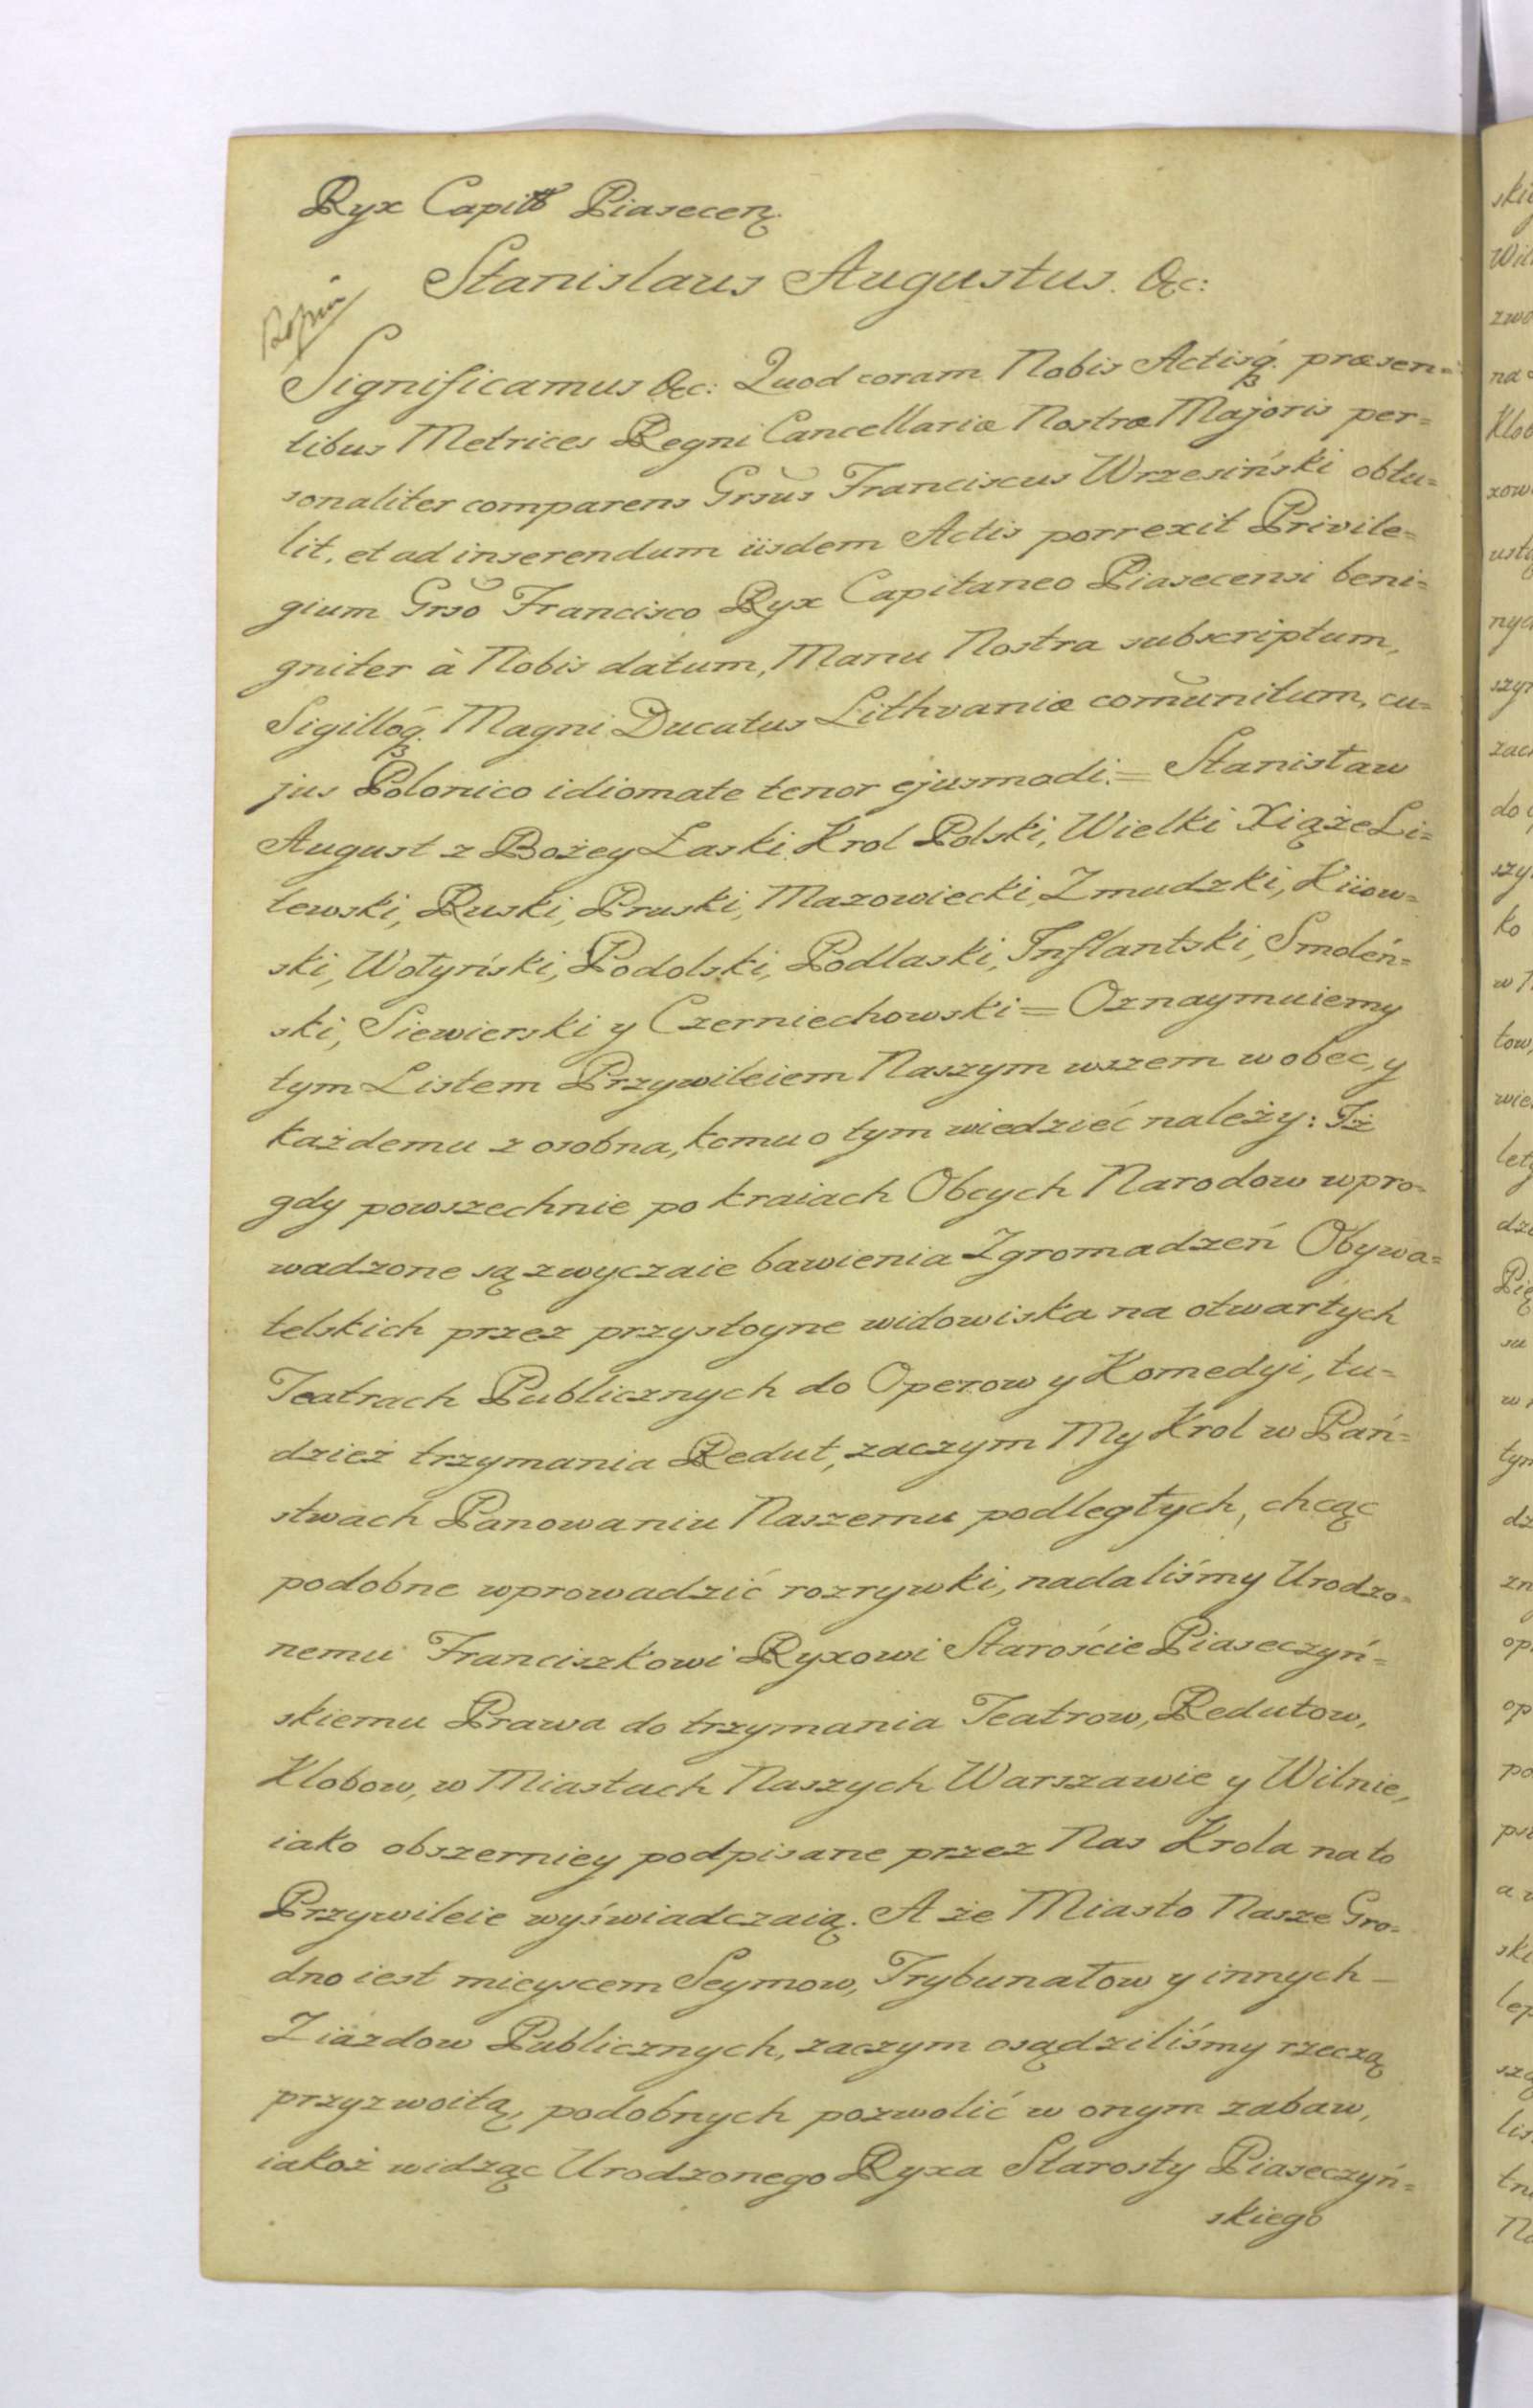 Ryx Capit Piasecen.
Stanislaus Augustus. &c:
Significamus &c: Quod coram Nobis Actisq. præsen=
tibus Metrices Regni Cancellariæ Nostræ Majoris per=
sonaliter comparens Grsus Franciscus Wrzesiński obtu=
lit, et ad inserendum iisdem Actis porrexit Privile=
gium Grso Francisco Ryx Capitaneo Piasecensi beni=
gniter à Nobis datum, Manu Nostra subscriptum,
Sigilloq. Magni Ducatus Lithvaniæ com̄unitum, cu=
jus Polonico idiomate tenor ejusmodi.= Stanisław
August z Bożey Łaski Krol Polski, Wielki Xiąże Li=
tewski, Ruski, Pruski, Mazowiecki, Zmudzki, Kiiow=
ski, Wołyński, Podolski, Podlaski, Inflantski, Smoleń=
ski, Siewierski y Czerniechowski= Oznaymuiemy
tym Listem Przywileiem Naszym wszem wobec, y
każdemu z osobna, komu o tym wiedzieć należy: Iż
gdy powszechnie po kraiach Obcych Narodow wpro=
wadzone są zwyczaie bawienia Zgromadzeń Obywa=
telskich przez przystoyne widowiska na otwartych
Teatrach Publicznych do Operow y Komedyi, tu=
dzież trzymania Redut, zaczym My Krol w Pań=
stwach Panowaniu Naszemu podległych, chcąc
podobne wprowadzić rozrywki, nadaliśmy Urodzo=
nemu Franciszkowi Ryxowi Staroście Piaseczyń=
skiemu Prawa do trzymania Teatrow, Redutow,
Klobow, w Miastach Naszych Warszawie y Wilnie,
iako obszerniey podpisane przez Nas Krola na to
Przywileie wyświadczaią. A że Miasto Nasze Gro=
dno iest mieyscem Seymow, Trybunałow y innych—
Ziazdow Publicznych, zaczym osądziliśmy rzeczą
przyzwoitą, podobnych pozwolić w onym zabaw,
iakoż widząc Urodzonego Ryxa Starosty Piaseczyń=
skiego